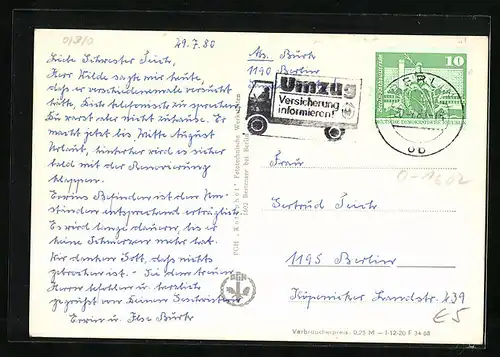 0/9/0
29.7.80
Liebe Schwester Teich,
Herr Wilde sagte mir heute,
daß er verschiedenemale versucht
hätte, Dich telefonisch zu sprechen,
Du warst aber nicht zuhause. Er
macht jetzt bis Mitte August
Urlaub, hinterher wird es sicher
bald mit der Renovierung
klappen.
Erwins Befinden ist den Um-
ständen entsprechend erträglich.
Es wird lange dauern, bis er
keine Schmerzen mehr hat.
Wir danken Gott, daß nichts
gebrochen ist. - Sei dem treuen
Herrn befohlen u. herzlich
gegrüßt von Deinen Geschwistern
Erwin u. Ilse Bürk
Abs. Bürk
1190 Berlin
Umzug
Versicherung
informieren!
BERLIN
10
DEUTSCHE DEMOKRATISCHE REPUBLIK
Frau
0-1602
Gertrud Teich
1195 Berlin
Köpenicker Landstr. 239
€5
PGH
Verbraucherpreis: 0,25 M — I-12-20 F 34 68